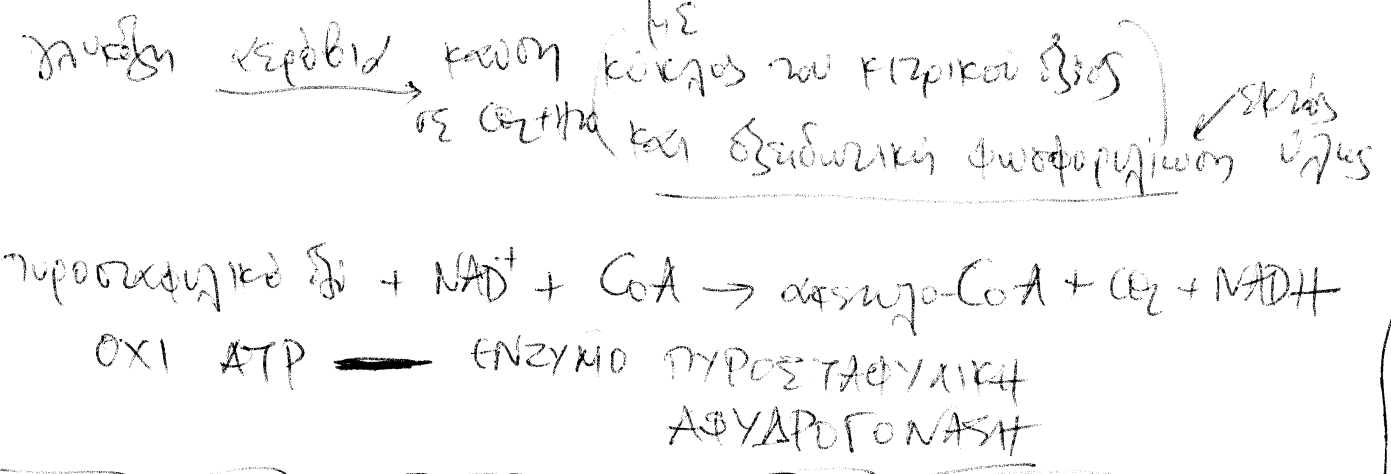 γλυκόζη αερόβια καύση με κύκλος του κιτρικού οξέος
σε CO2+H2O και οξειδωτική φωσφορυλίωση εκτός ύλης
πυροσταφυλικό οξύ + NAD+ + CoA → ακετυλο-CoA + CO2 + NADH
ΟΧΙ ATP — ΕΝΖΥΜΟ ΠΥΡΟΣΤΑΦΥΛΙΚΗ
ΑΦΥΔΡΟΓΟΝΑΣΗ